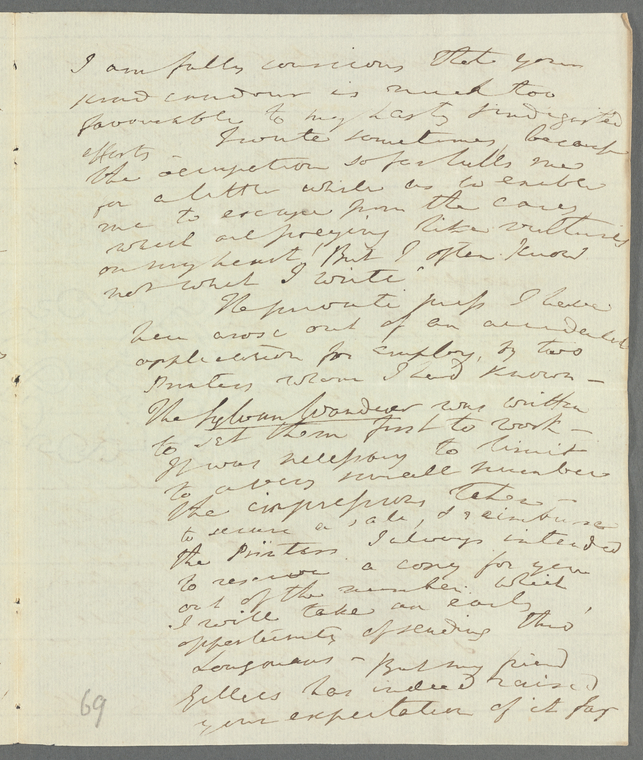 I am fully conscious that your
kind candour is much too
favourable to my hasty & indigested
efforts — I write sometimes, because
the occupation so far lulls me
for a little while as to enable
me to escape from the cares
which are preying like vultures
on my heart, But I often know
not what I write.
The private press I have
here arose out of an accidental
application for employ, by two
Printers whom I had known —
The Sylvan Wanderer was written
to set them first to work —
It was necessary to limit
to a very small number
the impressions taken —
to secure a sale, & reimburse
the Printers. I always intended
to reserve a copy for you
out of the number which
I will take an early
opportunity of sending thro'
Longmans — But my friend
Gillies has indeed raised
your expectation of it far
69